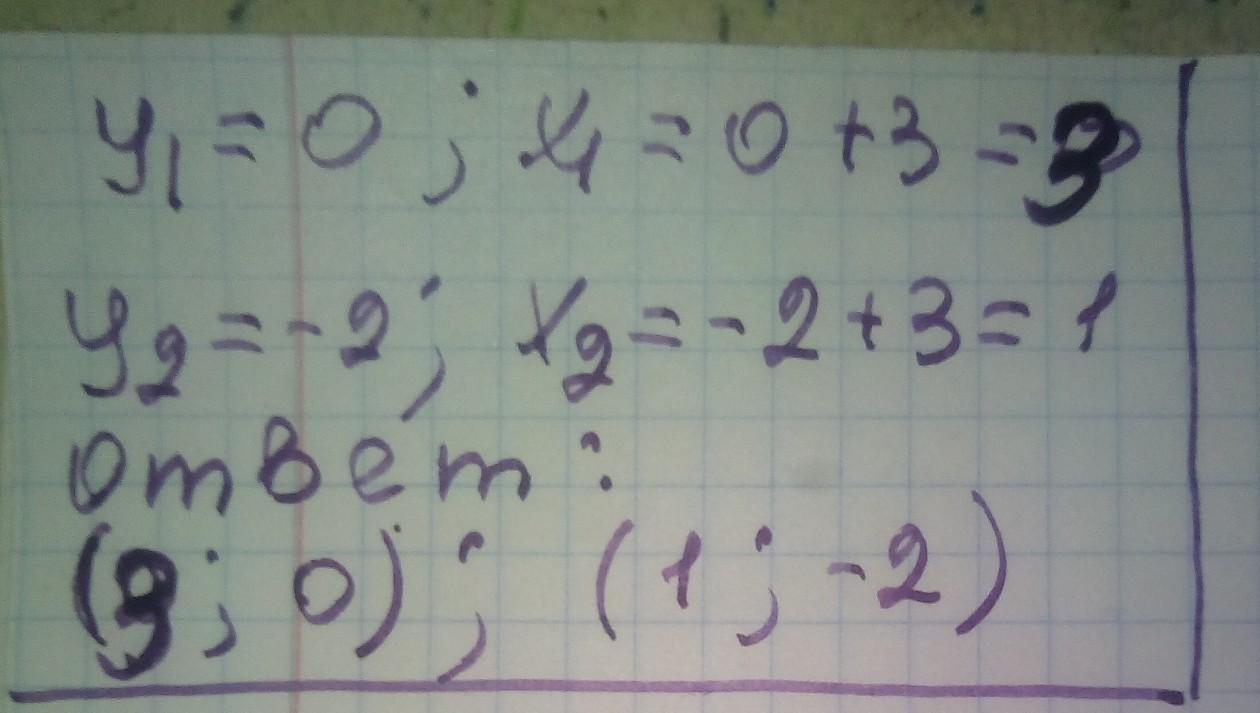 y₁ = 0 ; x₁ = 0 + 3 = 3
y₂ = -2 ; x₂ = -2 + 3 = 1
ответ :
(3 ; 0) ; (1 ; -2)